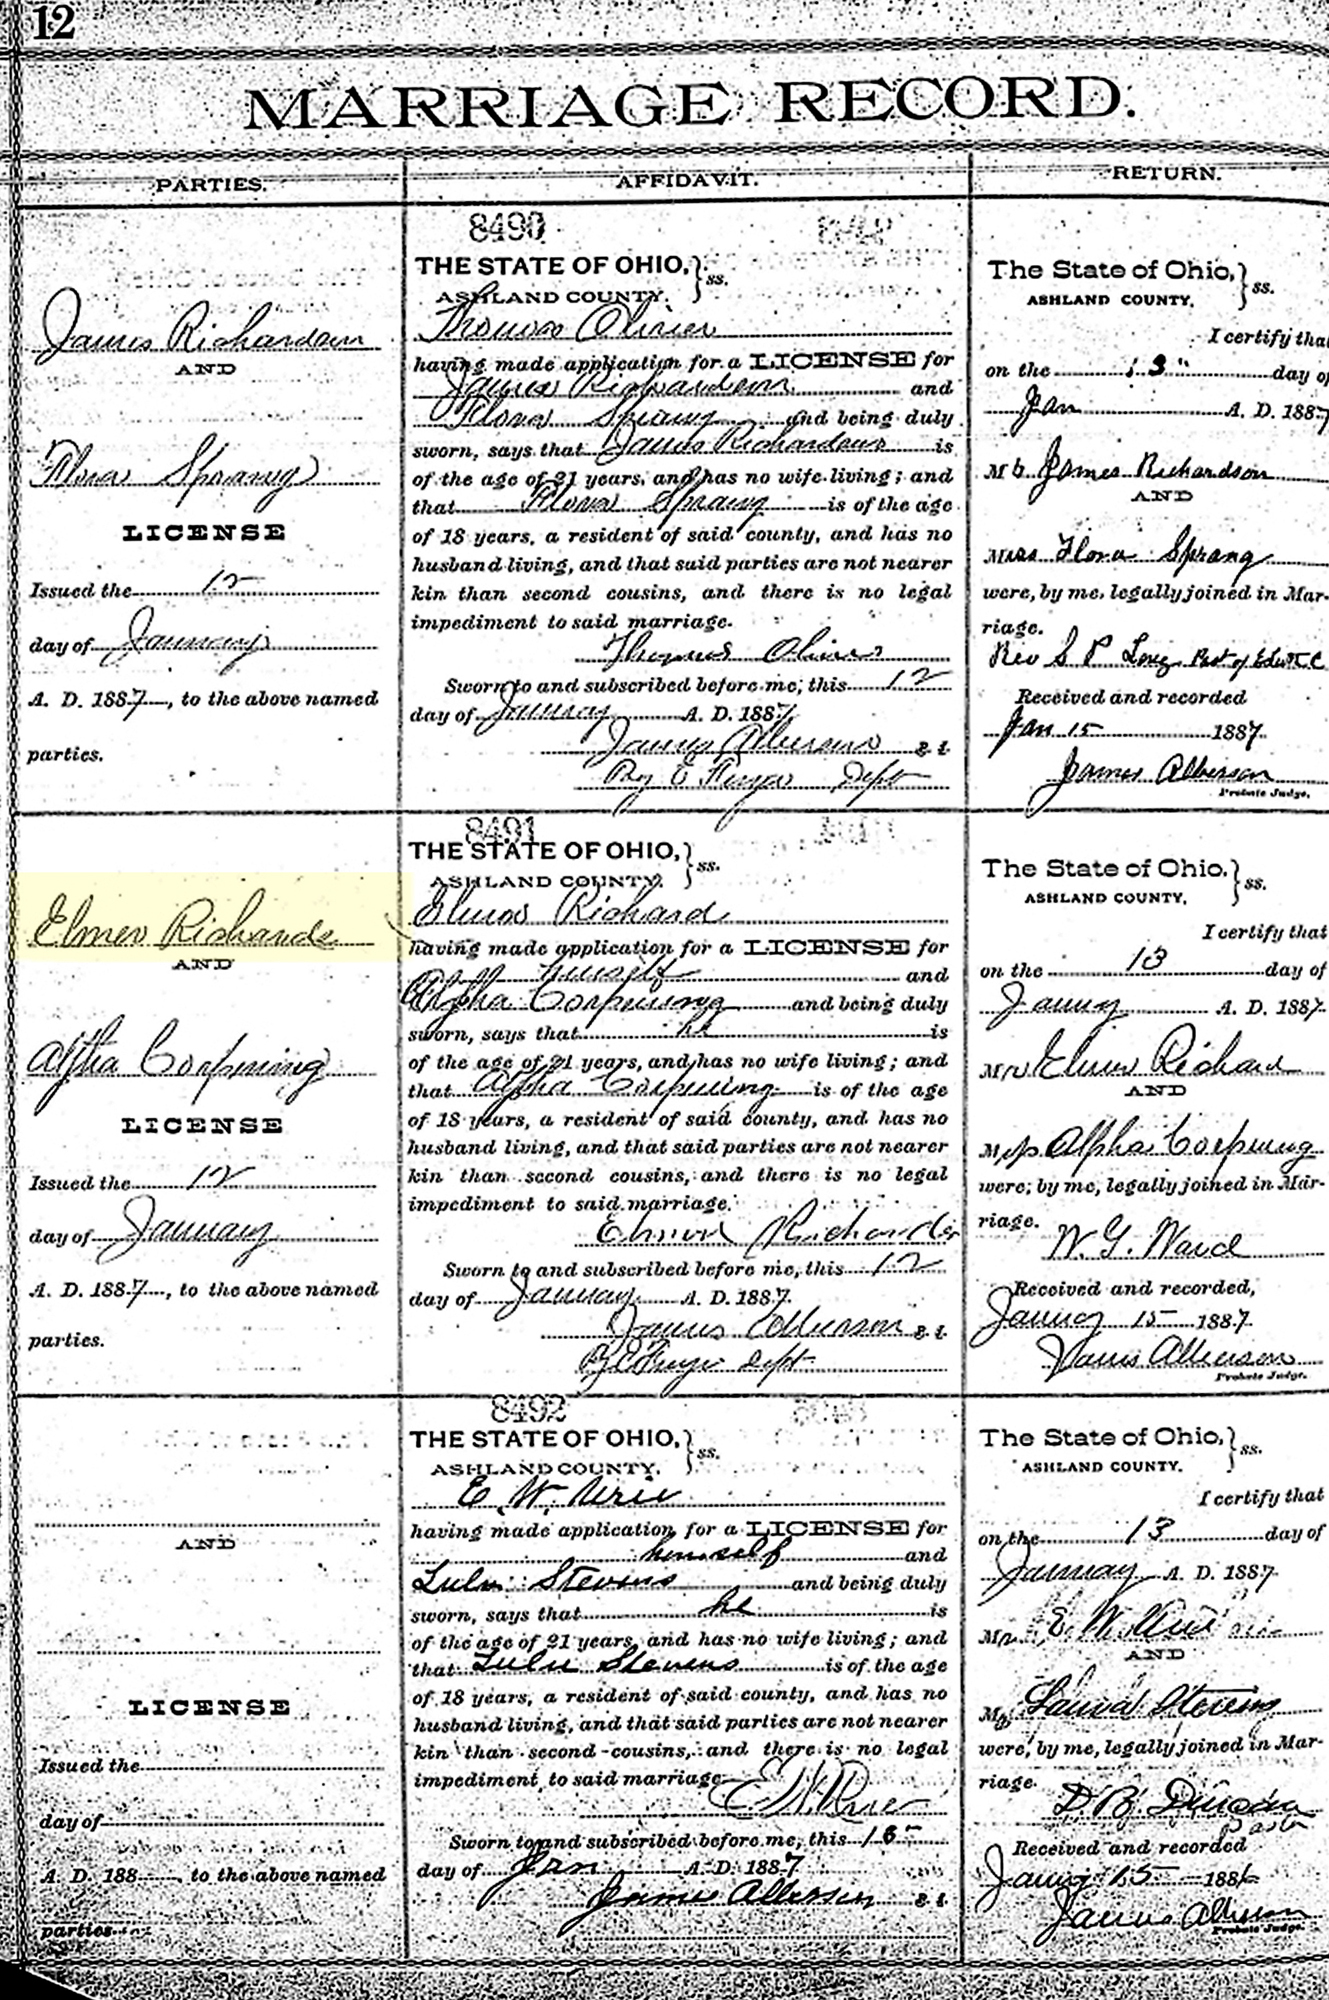 12
MARRIAGE RECORD.
PARTIES.
AFFIDAVIT.
RETURN.
James Richardson
AND
Flora Sprang
LICENSE
Issued the 12
day of January
A. D. 1887, to the above named
parties.
8490
THE STATE OF OHIO, } ss.
ASHLAND COUNTY.
Thomas Oliver
having made application for a LICENSE for
James Richardson and
Flora Sprang and being duly
sworn, says that James Richardson is
of the age of 21 years, and has no wife living; and
that Flora Sprang is of the age
of 18 years, a resident of said county, and has no
husband living, and that said parties are not nearer
kin than second cousins, and there is no legal
impediment to said marriage.
Thomas Oliver
Sworn to and subscribed before me, this 12
day of January A. D. 1887.
James Alberson
By E Dept
The State of Ohio, } ss.
ASHLAND COUNTY.
I certify that
on the 13" day of
Jan A. D. 1887
Mr James Richardson
AND
Miss Flora Sprang
were, by me, legally joined in Mar-
riage.
Rev S P Long
Received and recorded
Jan 15 1887.
James Alberson
Probate Judge.
Elmer Richards
AND
Alpha Corpening
LICENSE
Issued the 12
day of January
A. D. 1887, to the above named
parties.
8491
THE STATE OF OHIO, } ss.
ASHLAND COUNTY.
Elmer Richard
having made application for a LICENSE for
himself and
Alpha Corpening and being duly
sworn, says that he is
of the age of 21 years, and has no wife living; and
that Alpha Corpening is of the age
of 18 years, a resident of said county, and has no
husband living, and that said parties are not nearer
kin than second cousins, and there is no legal
impediment to said marriage.
Elmer Richards
Sworn to and subscribed before me, this 12
day of January A. D. 1887.
James Alberson
Dept
The State of Ohio, } ss.
ASHLAND COUNTY.
I certify that
on the 13 day of
January A. D. 1887.
Mr Elmer Richard
AND
Alpha Corpening
were, by me, legally joined in Mar-
riage.
W. G. Ward
Received and recorded,
January 15 1887.
James Alberson
Probate Judge.
AND
LICENSE
Issued the
day of
A. D. 188 , to the above named
parties.
8492
THE STATE OF OHIO, } ss.
ASHLAND COUNTY.
E. W. Urie
having made application for a LICENSE for
himself and
Lulu Stevens and being duly
sworn, says that he is
of the age of 21 years, and has no wife living; and
that Lulu Stevens is of the age
of 18 years, a resident of said county, and has no
husband living, and that said parties are not nearer
kin than second cousins, and there is no legal
impediment to said marriage.
E W Urie
Sworn to and subscribed before me, this
day of Jan A. D. 1887
James Alberson
The State of Ohio, } ss.
ASHLAND COUNTY.
I certify that
on the 13 day of
January A. D. 1887
Mr E. W. Urie
AND
Stevens
were, by me, legally joined in Mar-
riage.
D. B. Duncan
Received and recorded
January 15 188
James Alberson
Probate Judge.